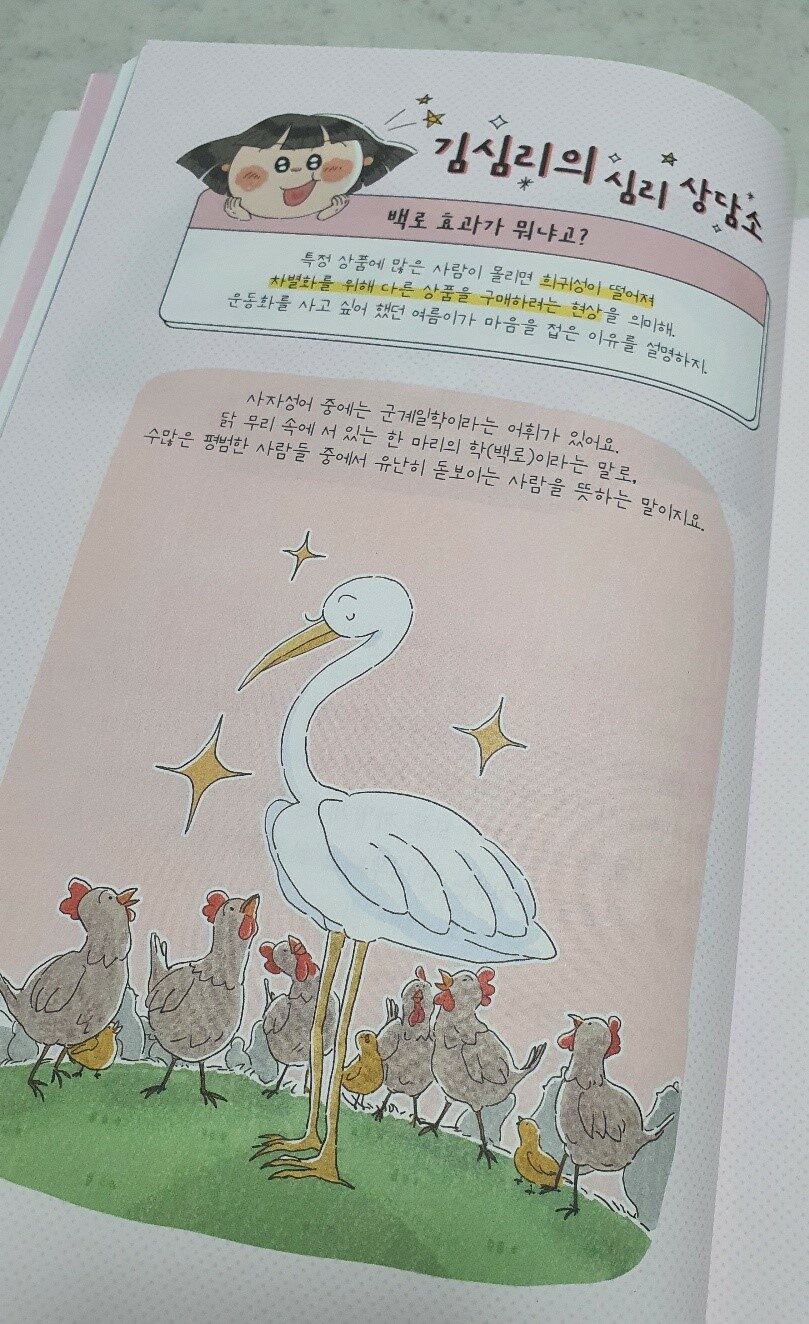 김심리의 심리 상담소
백로 효과가 뭐냐고?
특정 상품에 많은 사람이 몰리면 희귀성이 떨어져
차별화를 위해 다른 상품을 구매하려는 현상을 의미해.
운동화를 사고 싶어 했던 여름이가 마음을 접은 이유를 설명하지.
사자성어 중에는 군계일학이라는 어휘가 있어요.
닭 무리 속에 서 있는 한 마리의 학(백로)이라는 말로,
수많은 평범한 사람들 중에서 유난히 돋보이는 사람을 뜻하는 말이지요.